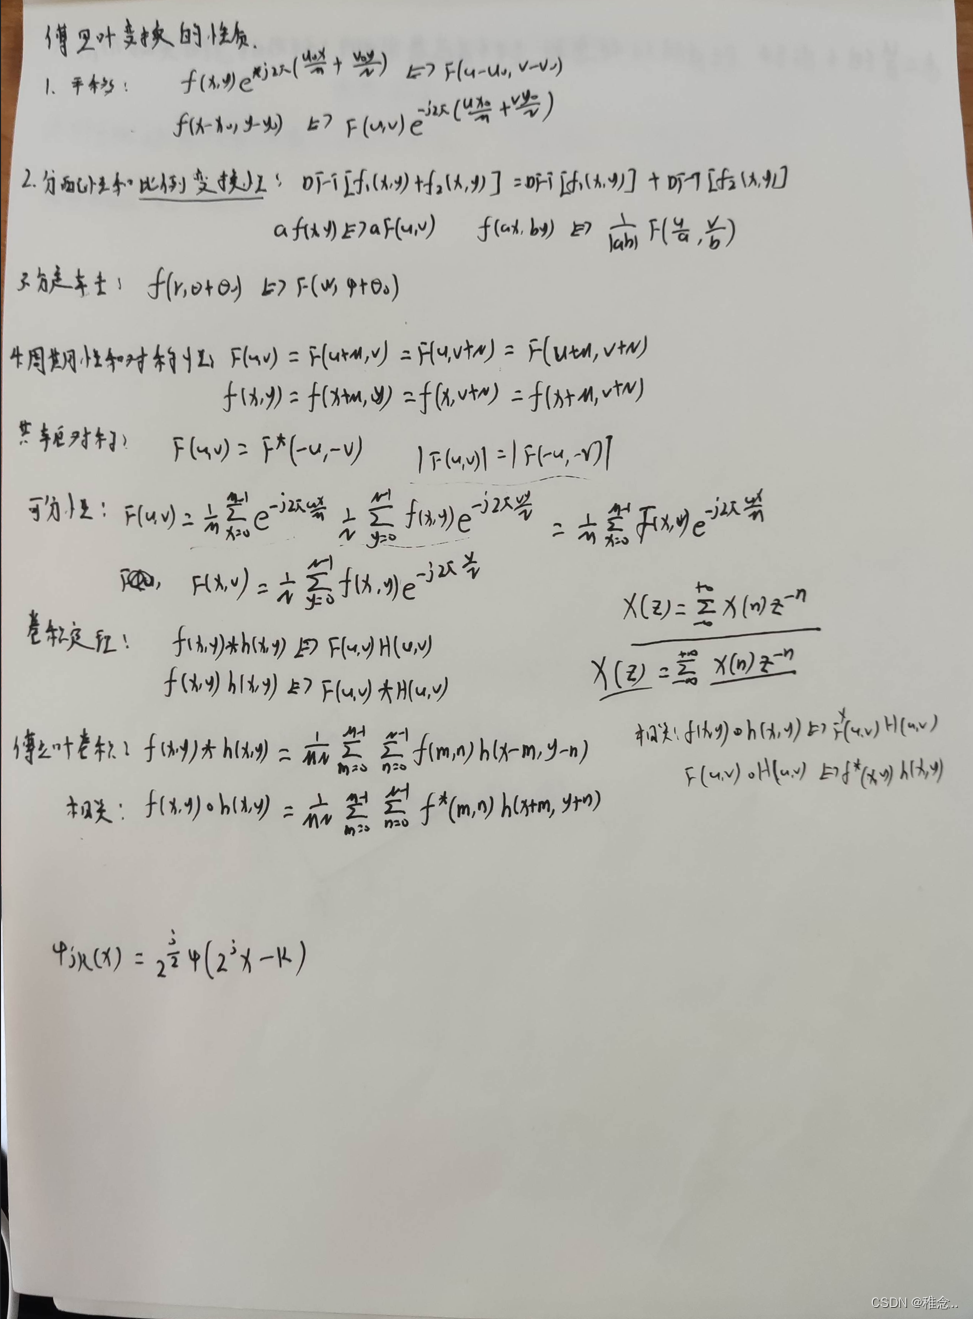 傅里叶变换的性质.
1. 平移: f(x,y)e^{j2π(u₀x/M + v₀y/N)} ⇔ F(u-u₀, v-v₀)
f(x-x₀, y-y₀) ⇔ F(u,v)e^{-j2π(ux₀/M + vy₀/N)}
2. 分配性和比例变换性: DFT[f₁(x,y)+f₂(x,y)] = DFT[f₁(x,y)] + DFT[f₂(x,y)]
af(x,y) ⇔ aF(u,v) f(ax,by) ⇔ 1/|ab| F(u/a, v/b)
3. 旋转性: f(r,θ+θ₀) ⇔ F(w,φ+θ₀)
4. 周期性和对称性: F(u,v) = F(u+M,v) = F(u,v+N) = F(u+M,v+N)
f(x,y) = f(x+M,y) = f(x,v+N) = f(x+M,v+N)
共轭对称: F(u,v) = F*(-u,-v) |F(u,v)| = |F(-u,-v)|
可分性: F(u,v) = 1/M ∑_{x=0}^{M-1} e^{-j2πux/M} 1/N ∑_{y=0}^{N-1} f(x,y)e^{-j2πvy/N} = 1/M ∑_{x=0}^{M-1} F(x,v)e^{-j2πux/M}
F(x,v) = 1/N ∑_{y=0}^{N-1} f(x,y)e^{-j2πv/N}
X(z) = ∑_{-∞}^{+∞} x(n)z^{-n}
卷积定理: f(x,y)*h(x,y) ⇔ F(u,v)H(u,v)
X(z) = ∑_{-∞}^{+∞} x(n)z^{-n}
f(x,y)h(x,y) ⇔ F(u,v)*H(u,v)
傅里叶卷积: f(x,y)*h(x,y) = 1/MN ∑_{m=0}^{M-1} ∑_{n=0}^{N-1} f(m,n)h(x-m,y-n)
相关: f(x,y)∘h(x,y) ⇔ F*(u,v)H(u,v)
F(u,v)∘H(u,v) ⇔ f*(x,y)h(x,y)
相关: f(x,y)∘h(x,y) = 1/MN ∑_{m=0}^{M-1} ∑_{n=0}^{N-1} f*(m,n)h(x+m,y+n)
ψjk(x) = 2^{j/2}ψ(2^j x-k)
CSDN @稚念..